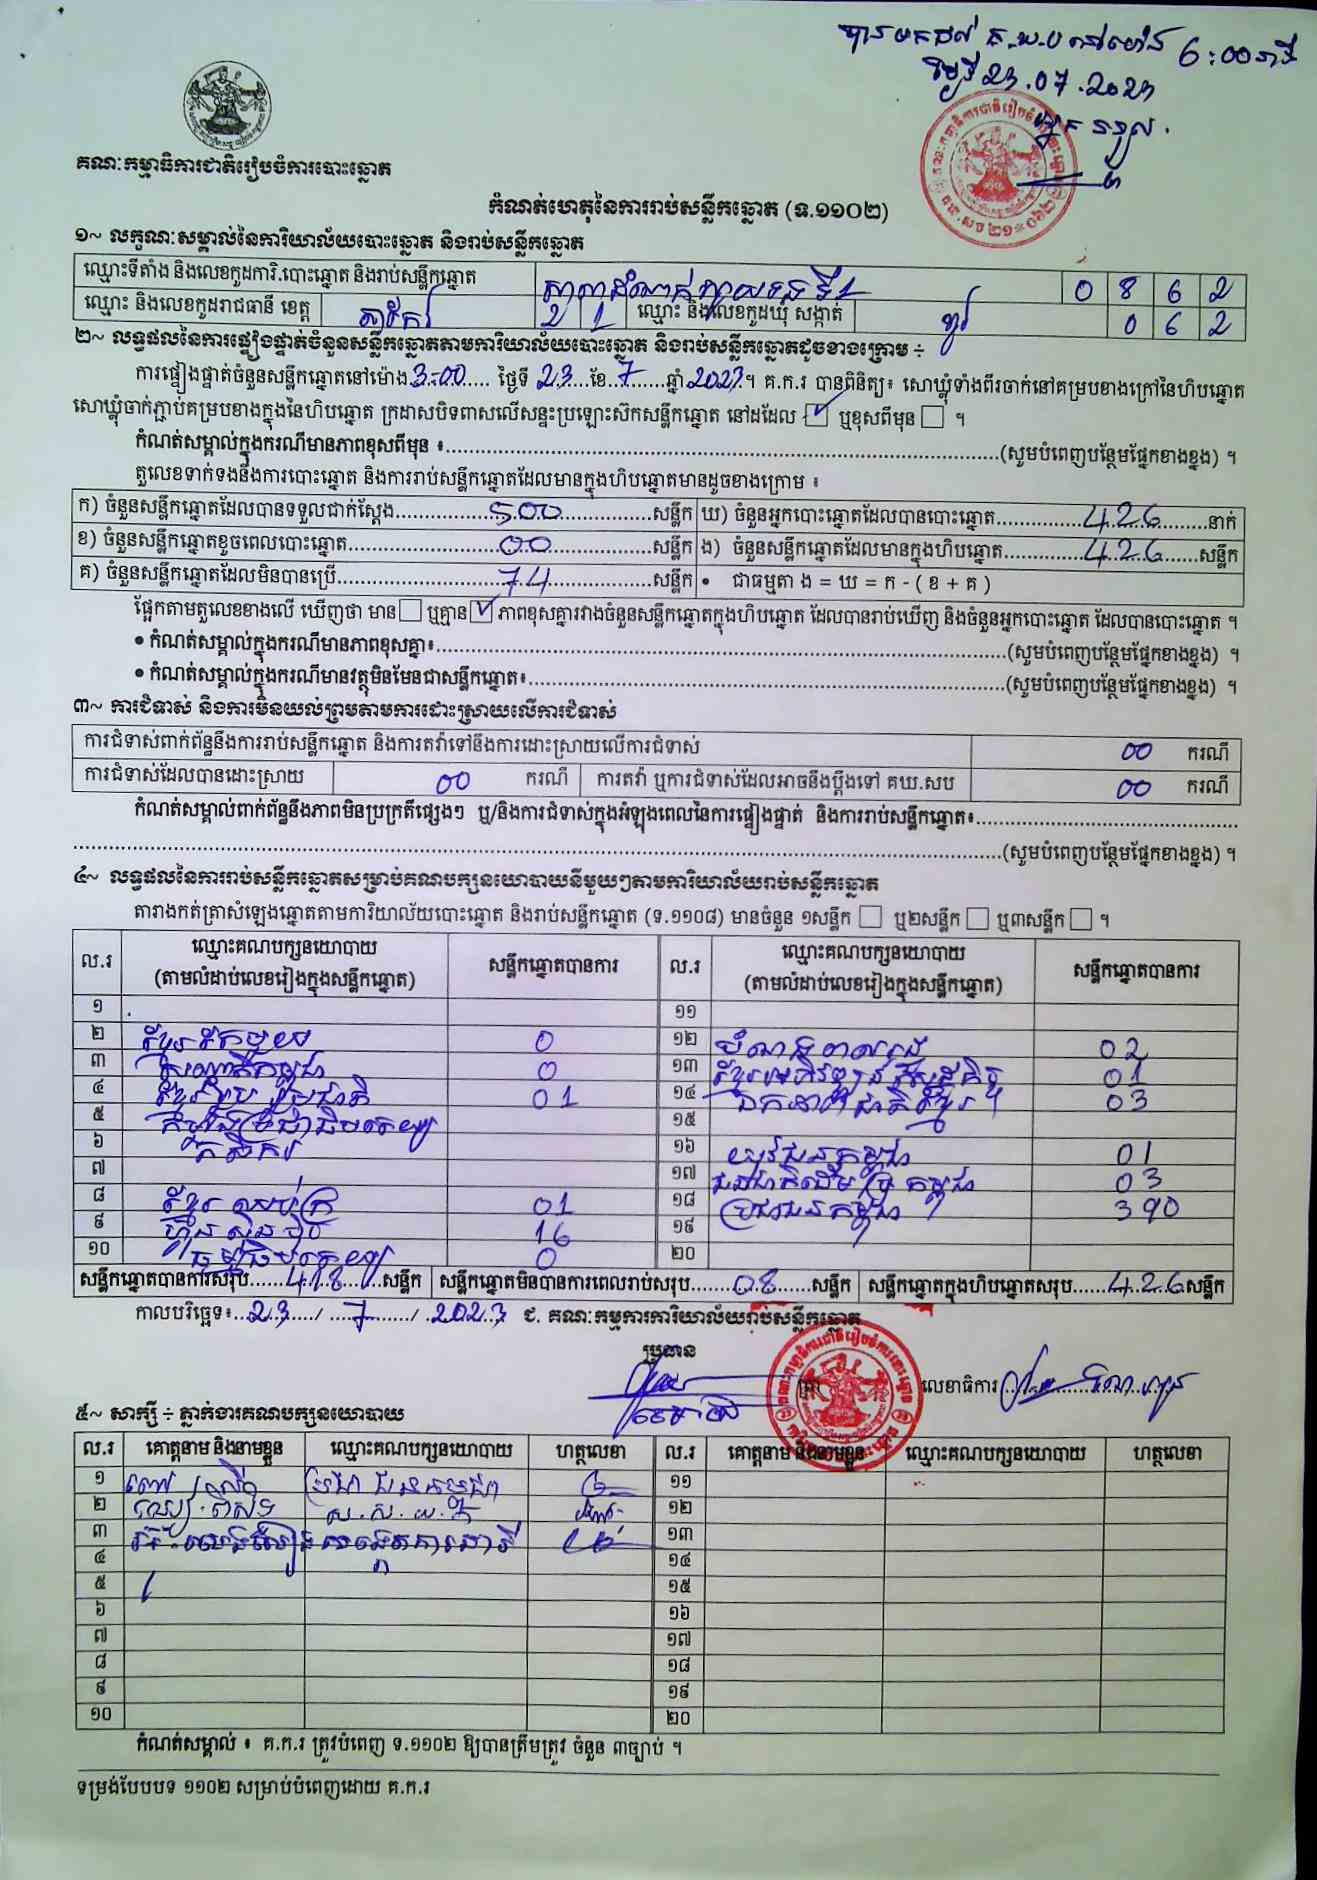 បានមកដល់ គ.ឃ.ប នៅម៉ោង 6:00 នាទី
ថ្ងៃទី 23.07.2023
គណៈកម្មាធិការជាតិរៀបចំការបោះឆ្នោត
កំណត់ហេតុនៃការរាប់សន្លឹកឆ្នោត (ទ.១១០២)
១~ លក្ខណៈសម្គាល់នៃការិយាល័យបោះឆ្នោត និងរាប់សន្លឹកឆ្នោត
ឈ្មោះទីតាំង និងលេខកូដការិ.បោះឆ្នោត និងរាប់សន្លឹកឆ្នោត 0 8 6 2
ឈ្មោះ និងលេខកូដរាជធានី ខេត្ត តាកែវ 2 1 ឈ្មោះ និងលេខកូដឃុំ សង្កាត់ 0 6 2
២~ លទ្ធផលនៃការផ្ទៀងផ្ទាត់ចំនួនសន្លឹកឆ្នោតតាមការិយាល័យបោះឆ្នោត និងរាប់សន្លឹកឆ្នោតដូចខាងក្រោម ÷
ការផ្ទៀងផ្ទាត់ចំនួនសន្លឹកឆ្នោតនៅម៉ោង 3:00 ថ្ងៃទី 23 ខែ 7 ឆ្នាំ 2023 ។ គ.ក.រ បានពិនិត្យ៖ សោឃ្លុំទាំងពីរចាក់នៅគម្របខាងក្រៅនៃហិបឆ្នោត
សោឃ្លុំចាក់ភ្ជាប់គម្របខាងក្នុងនៃហិបឆ្នោត ក្រដាសបិទពាសលើសន្ទះប្រឡោះស៊កសន្លឹកឆ្នោត នៅដដែល ☑ ឬខុសពីមុន ☐ ។
កំណត់សម្គាល់ក្នុងករណីមានភាពខុសពីមុន ៖ (សូមបំពេញបន្ថែមផ្នែកខាងខ្នង) ។
តួលេខទាក់ទងនឹងការបោះឆ្នោត និងការរាប់សន្លឹកឆ្នោតដែលមានក្នុងហិបឆ្នោតមានដូចខាងក្រោម ៖
ក) ចំនួនសន្លឹកឆ្នោតដែលបានទទួលជាក់ស្តែង 500 សន្លឹក ឃ) ចំនួនអ្នកបោះឆ្នោតដែលបានបោះឆ្នោត 426 នាក់
ខ) ចំនួនសន្លឹកឆ្នោតខូចពេលបោះឆ្នោត 00 សន្លឹក ង) ចំនួនសន្លឹកឆ្នោតដែលមានក្នុងហិបឆ្នោត 426 សន្លឹក
គ) ចំនួនសន្លឹកឆ្នោតដែលមិនបានប្រើ 74 សន្លឹក • ជាធម្មតា ង = ឃ = ក - ( ខ + គ )
ផ្អែកតាមតួលេខខាងលើ ឃើញថា មាន ☐ ឬគ្មាន ☑ ភាពខុសគ្នារវាងចំនួនសន្លឹកឆ្នោតក្នុងហិបឆ្នោត ដែលបានរាប់ឃើញ និងចំនួនអ្នកបោះឆ្នោត ដែលបានបោះឆ្នោត ។
• កំណត់សម្គាល់ក្នុងករណីមានភាពខុសគ្នា៖ (សូមបំពេញបន្ថែមផ្នែកខាងខ្នង) ។
• កំណត់សម្គាល់ក្នុងករណីមានវត្ថុមិនមែនជាសន្លឹកឆ្នោត៖ (សូមបំពេញបន្ថែមផ្នែកខាងខ្នង) ។
៣~ ការជំទាស់ និងការមិនយល់ព្រមតាមការដោះស្រាយលើការជំទាស់
ការជំទាស់ពាក់ព័ន្ធនឹងការរាប់សន្លឹកឆ្នោត និងការតវ៉ាទៅនឹងការដោះស្រាយលើការជំទាស់ 00 ករណី
ការជំទាស់ដែលបានដោះស្រាយ 00 ករណី ការតវ៉ា ឬការជំទាស់ដែលអាចនឹងប្តឹងទៅ គឃ.សប 00 ករណី
កំណត់សម្គាល់ពាក់ព័ន្ធនឹងភាពមិនប្រក្រតីផ្សេងៗ ឬ/និងការជំទាស់ក្នុងអំឡុងពេលនៃការផ្ទៀងផ្ទាត់ និងការរាប់សន្លឹកឆ្នោត៖
(សូមបំពេញបន្ថែមផ្នែកខាងខ្នង) ។
៤~ លទ្ធផលនៃការរាប់សន្លឹកឆ្នោតសម្រាប់គណបក្សនយោបាយនីមួយៗតាមការិយាល័យរាប់សន្លឹកឆ្នោត
តារាងកត់ត្រាសំឡេងឆ្នោតតាមការិយាល័យបោះឆ្នោត និងរាប់សន្លឹកឆ្នោត (ទ.១១០៨) មានចំនួន ១សន្លឹក ☐ ឬ២សន្លឹក ☐ ឬ៣សន្លឹក ☐ ។
ល.រ ឈ្មោះគណបក្សនយោបាយ (តាមលំដាប់លេខរៀងក្នុងសន្លឹកឆ្នោត) សន្លឹកឆ្នោតបានការ ល.រ ឈ្មោះគណបក្សនយោបាយ (តាមលំដាប់លេខរៀងក្នុងសន្លឹកឆ្នោត) សន្លឹកឆ្នោតបានការ
១ ១១
២ ខ្មែរឥកភាព 0 ១២ 02
៣ 0 ១៣ ខ្មែរអភិវឌ្ឍន៍សេដ្ឋកិច្ច 01
៤ ខ្មែររួបរួមជាតិ 01 ១៤ ឯកភាពជាតិខ្មែរ 03
៥ កម្លាំងប្រជាធិបតេយ្យ ១៥
៦ កសិករ ១៦ យុវជនកម្ពុជា 01
៧ ១៧ ជនជាតិដើមប្រ កម្ពុជា 03
៨ ខ្មែរឈប់ក្រ 01 ១៨ ប្រជាជនកម្ពុជា 390
៩ ហ្វ៊ុនស៊ិនប៉ិច 16 ១៩
១០ ធម្មាធិបតេយ្យ 0 ២០
សន្លឹកឆ្នោតបានការសរុប 418 សន្លឹក សន្លឹកឆ្នោតមិនបានការពេលរាប់សរុប 08 សន្លឹក សន្លឹកឆ្នោតក្នុងហិបឆ្នោតសរុប 426 សន្លឹក
កាលបរិច្ឆេទ៖ 23 / 7 / 2023 ជ. គណៈកម្មការការិយាល័យរាប់សន្លឹកឆ្នោត
ប្រធាន
ត្រា លេខាធិការ
៥~ សាក្សី ÷ ភ្នាក់ងារគណបក្សនយោបាយ
ល.រ គោត្តនាម និងនាមខ្លួន ឈ្មោះគណបក្សនយោបាយ ហត្ថលេខា ល.រ គោត្តនាម និងនាមខ្លួន ឈ្មោះគណបក្សនយោបាយ ហត្ថលេខា
១ ប្រជាជនកម្ពុជា ១១
២ ស.ស.យ.ក ១២
៣ ១៣
៤ ១៤
៥ ១៥
៦ ១៦
៧ ១៧
៨ ១៨
៩ ១៩
១០ ២០
កំណត់សម្គាល់ ៖ គ.ក.រ ត្រូវបំពេញ ទ.១១០២ ឱ្យបានត្រឹមត្រូវ ចំនួន ៣ច្បាប់ ។
ទម្រង់បែបបទ ១១០២ សម្រាប់បំពេញដោយ គ.ក.រ